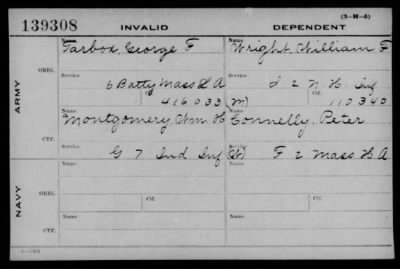 139308 INVALID DEPENDENT (3-M-5)
Name Name
Tarbox, George F Wright, William F
ARMY
ORIG. Service Service
6 Batty Mass L A I 2 N H Inf
Ctf. Ctf.
416033 (M) 110340
Name Name
Montgomery Wm H Connelly, Peter
CTF. Service Service
G 7 Ind Inf (W) F 2 Mass H A
NAVY
Name Name
ORIG. Ctf. Ctf.
Name Name
CTF.